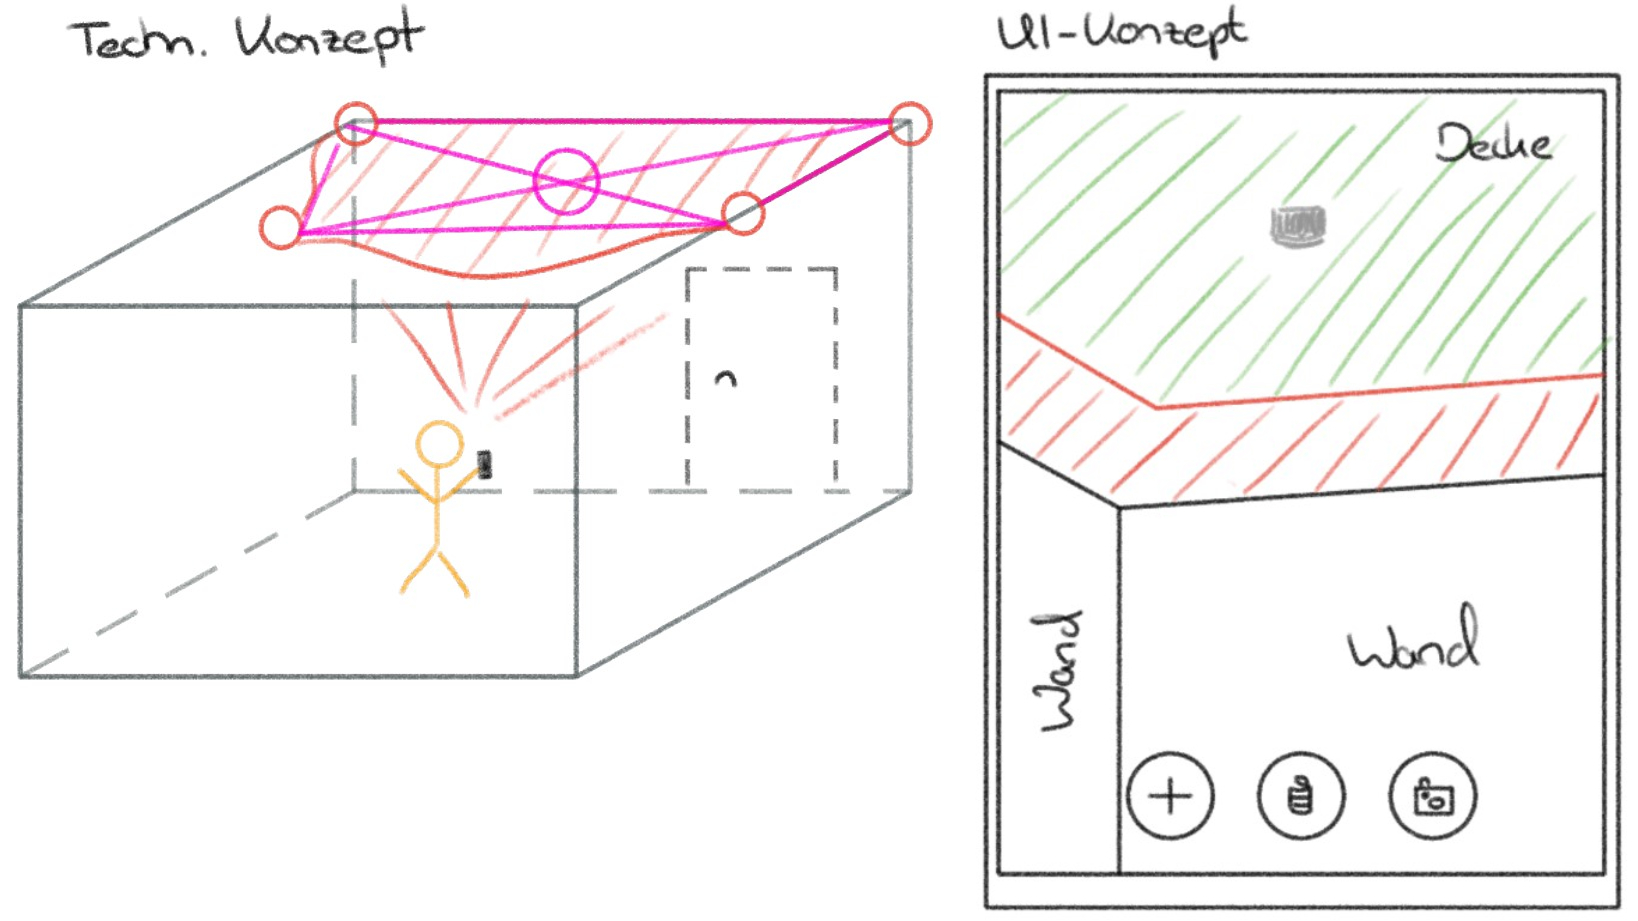 Techn. Konzept
UI-Konzept
Decke
Wand
Wand